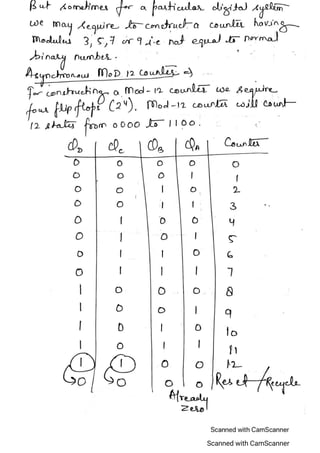 But sometimes for a particular digital system
we may require to construct a counter having
Modulus 3, 5, 7 or 9 i.e not equal to normal
binary number.
Asynchronous MOD 12 Counter ⇒
For constructing a Mod-12 counter we require
four flip flops (2⁴). Mod-12 counter will count
12 states from 0000 to 1100.
QD QC QB QA Counter
0 0 0 0 0
0 0 0 1 1
0 0 1 0 2
0 0 1 1 3
0 1 0 0 4
0 1 0 1 5
0 1 1 0 6
0 1 1 1 7
1 0 0 0 8
1 0 0 1 9
1 0 1 0 10
1 0 1 1 11
1 1 0 0 12
→0 →0 0 0 Reset/Recycle
Already
zero
Scanned with CamScanner
Scanned with CamScanner